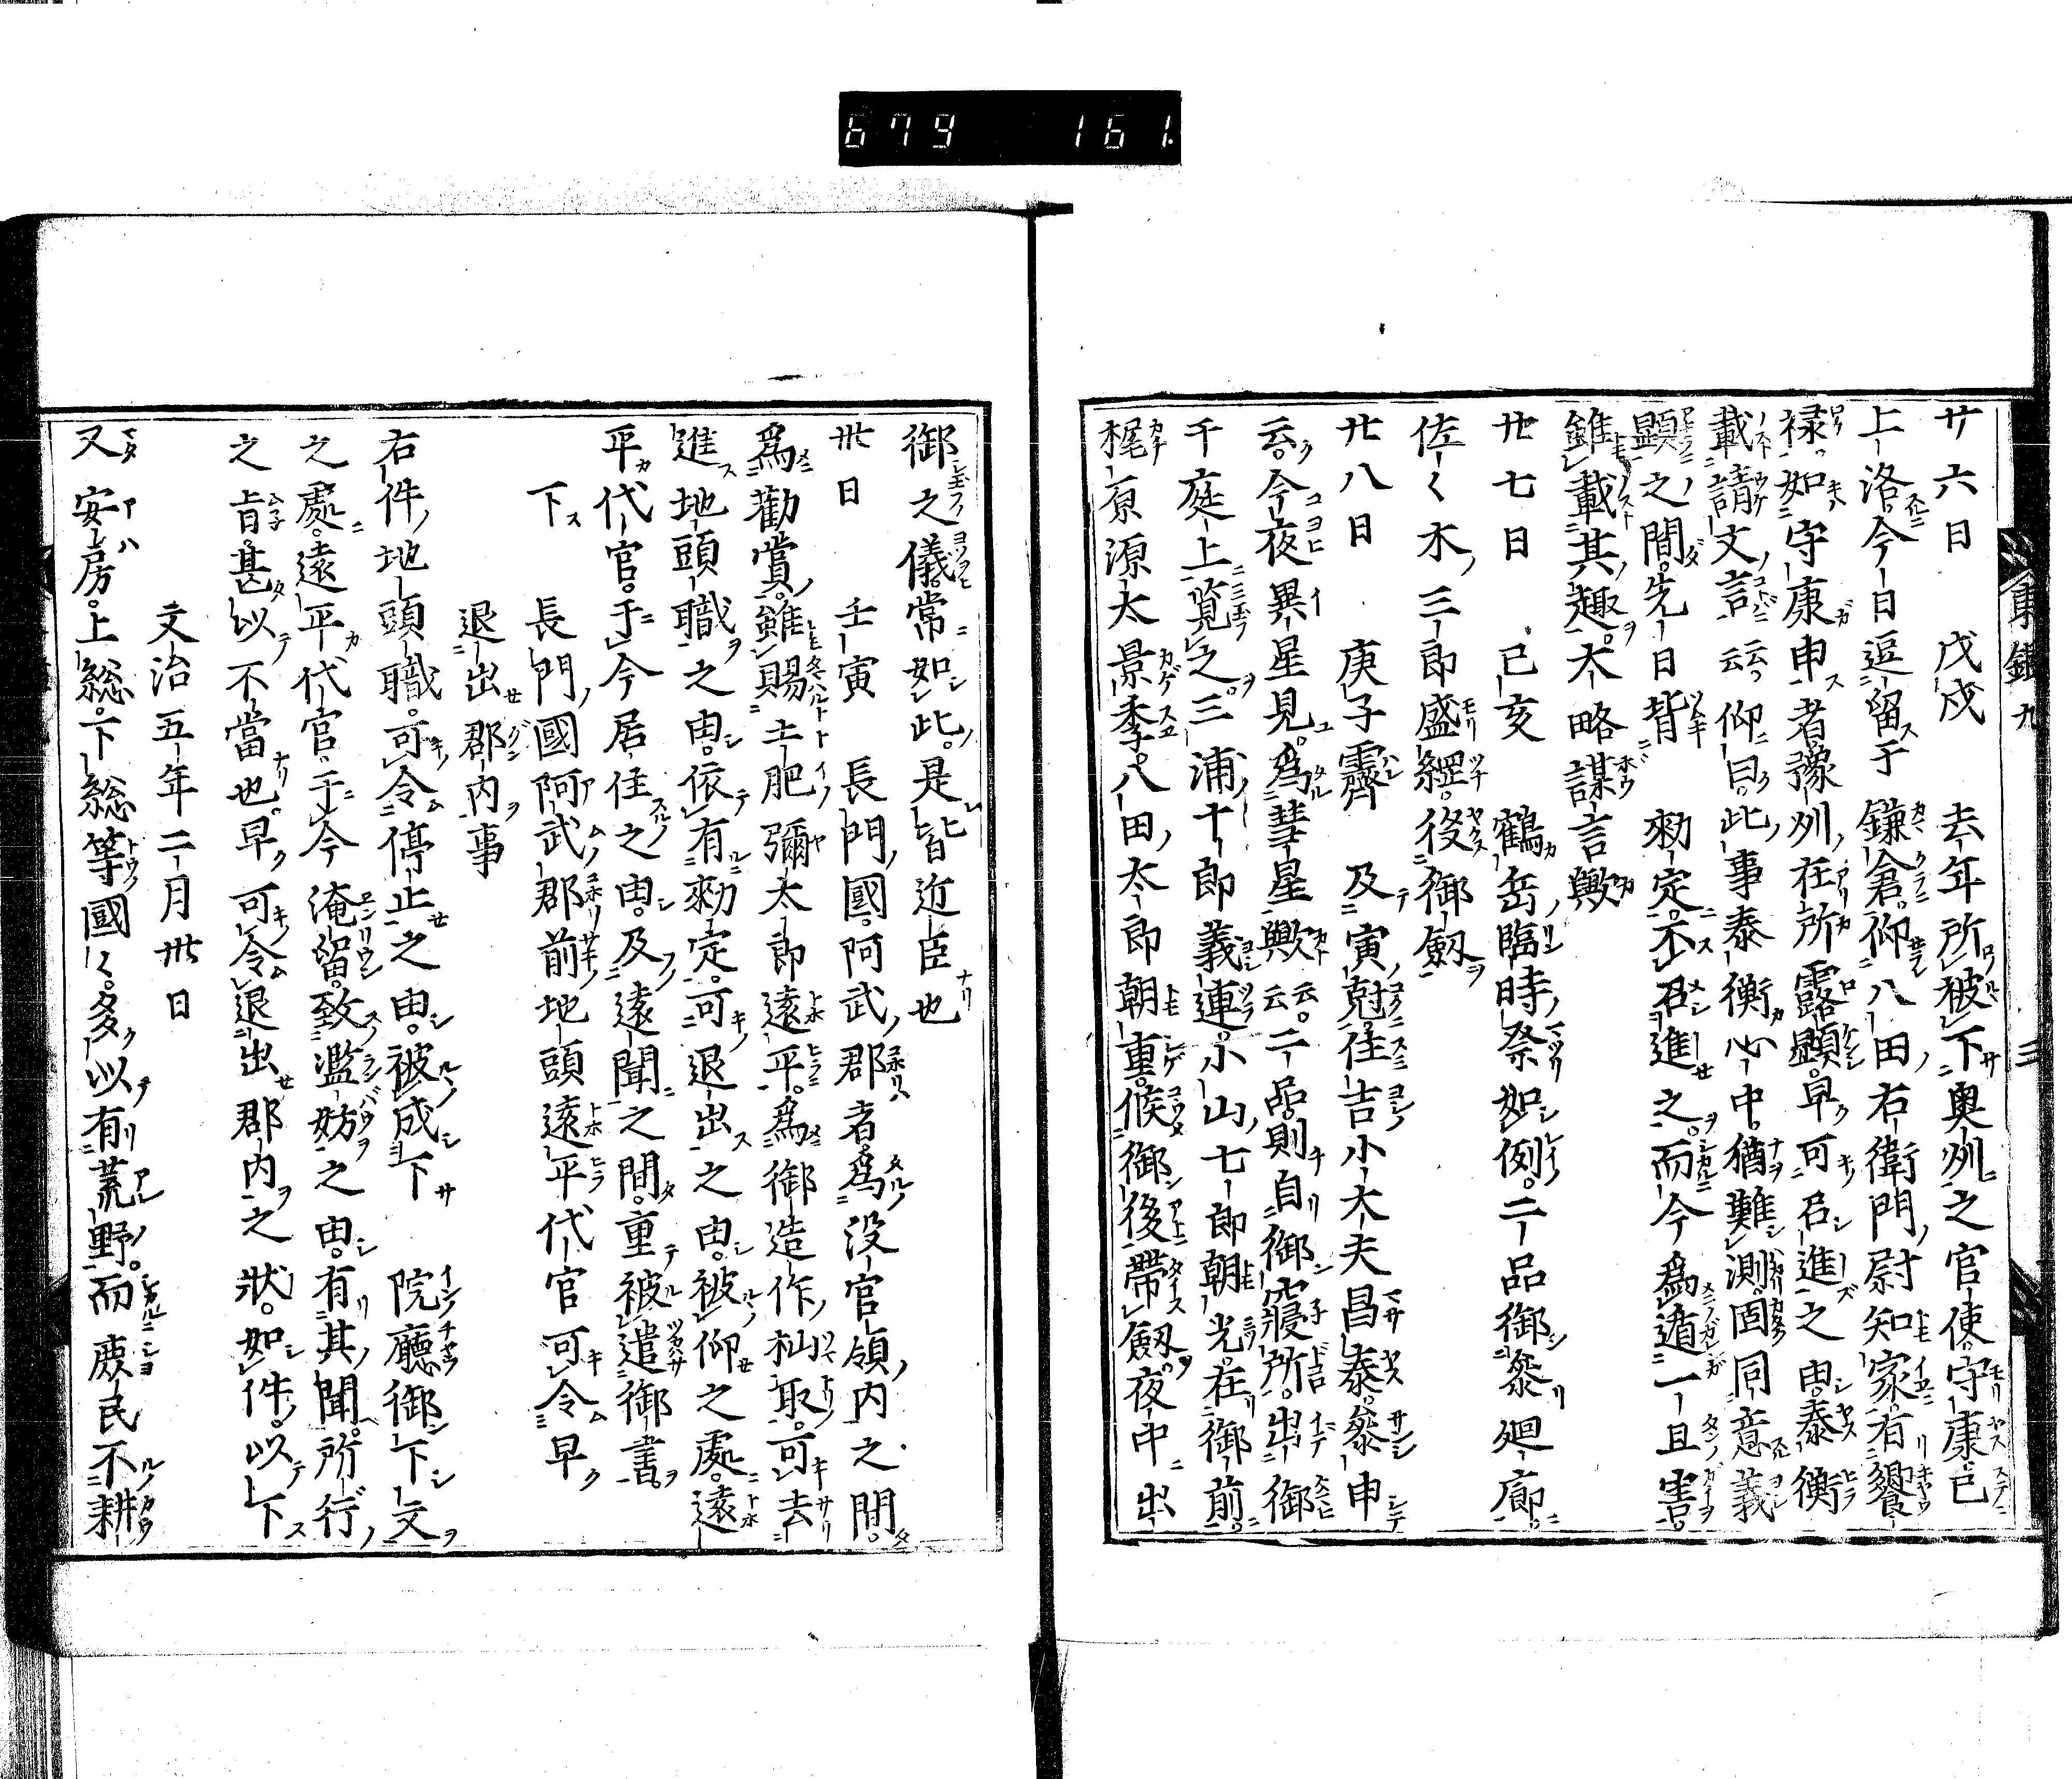 679 161
東鑑九 三
廿六日 戊戌 去年所被下奥州之官使守康已
上洛今日逗留于鎌倉仰八田右衛門尉知家有饗
禄如守康申者豫州在所露顕早可召進之由泰衡
載請文言云云仰曰此事泰衡心中猶難測固同意義
顕之間先日背 勅定不召進之而今為遁一旦害
雖載其趣太略謀言歟
廿七日 己亥 鶴岳臨時祭如例二品御参廻廊
佐々木三郎盛綱役御釼
廿八日 庚子霽 及寅尅住吉小大夫昌泰参申
云今夜異星見為彗星歟云云二品則自御寝所出御
于庭上覧之三浦十郎義連小山七郎朝光在御前
梶原源太景季八田太郎朝重候御後帯釼夜中出
御之儀常如此是皆近臣也
卅日 壬寅 長門國阿武郡者為没官領内之間
為勸賞雖賜土肥彌太郎遠平為御造作杣取可去
進地頭職之由依有勅定可退出之由被仰之處遠
平代官于今居住之由及遠聞之間重被遣御書
下 長門國阿武郡前地頭遠平代官可令早
退出郡内事
右件地頭職可令停止之由被成下 院廳御下文
之處遠平代官于今淹留致濫妨之由有其聞所行
之旨甚以不當也早可令退出郡内之状如件以下
文治五年二月卅日
又安房上総下総等國々多以有荒野而庶民不耕